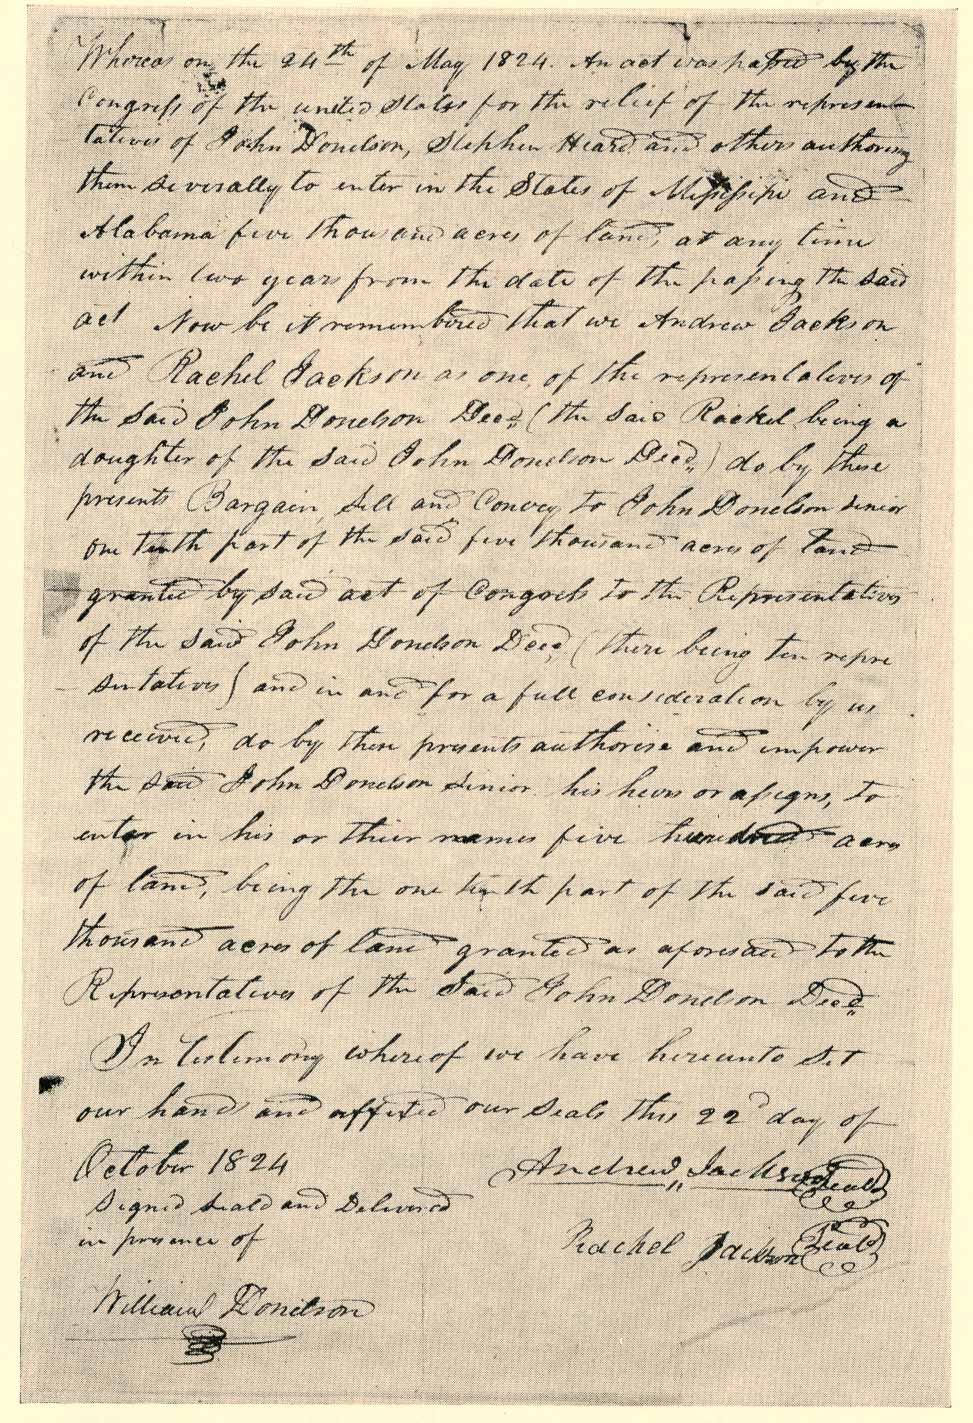 Whereas on the 24th of May 1824. An act was passed by the
Congress of the united States for the relief of the represen
tatives of John Donelson, Stephen Heard and others authorising
them severally to enter in the States of Missisipi and
Alabama five thousand acres of land, at any time
within two years from the date of the passing the said
act Now be it remembered that we Andrew Jackson
and Rachel Jackson as one, of the representatives of
the said John Donelson Decd, (the said Rachel being a
daughter of the said John Donelson Decd,) do by these
presents Bargain, Sell and Convey to John Donelson senior
one tenth part of the said five thousand acres of land
granted by said act of Congress to the Representatives
of the said John Donelson Decd, (there being ten repre
sentatives) and in and for a full consideration by us
received, do by these presents authorise and empower
the said John Donelson senior his heirs or assigns, to
enter in his or their names five hundred acres
of land, being the one tenth part of the said five
thousand acres of land granted as aforesaid to the
Representatives of the Said John Donelson Decd
In testimony whereof we have hereunto Set
our hands and affixed our seals this 22d day of
October 1824
Andrew Jackson Seal
Signed seald and Delivered
in presence of
Rachel Jackson Seal
William Donelson